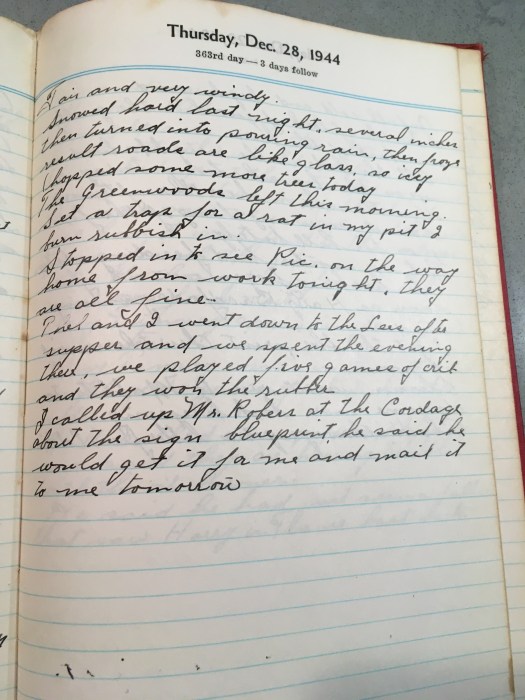 Thursday, Dec. 28, 1944
363rd day — 3 days follow
Fair and very windy.
Snowed hard last night, several inches
then turned into pouring rain, then froze
result roads are like glass, so icy
Chopped some more trees today
The Greenwoods left this morning.
Set a trap for a rat in my pit I
burn rubbish in.
Stopped in to see Vic. on the way
home from work tonight, they
are all fine.
and I went down to the Lees after
supper and we spent the evening
there, we played five games of crib
and they won the rubber
I called up Mr. Robers at the Cordage
about the sign blueprint, he said he
would get it for me and mail it
to me tomorrow